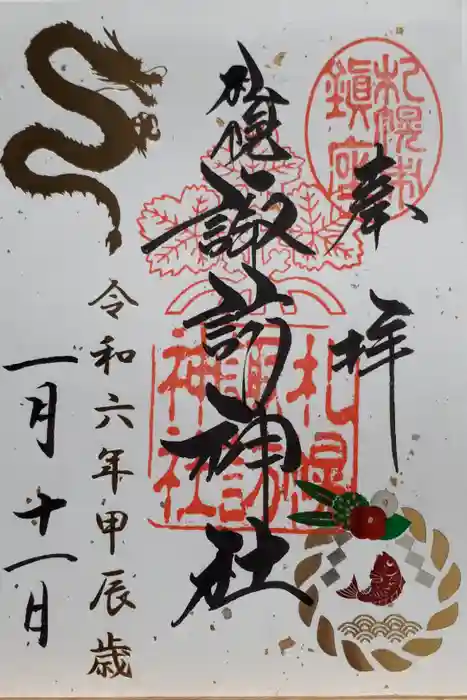 札幌市
鎮座
奉拝
札幌諏訪神社
札幌
諏訪
神社
令和六年甲辰歳
一月十一日